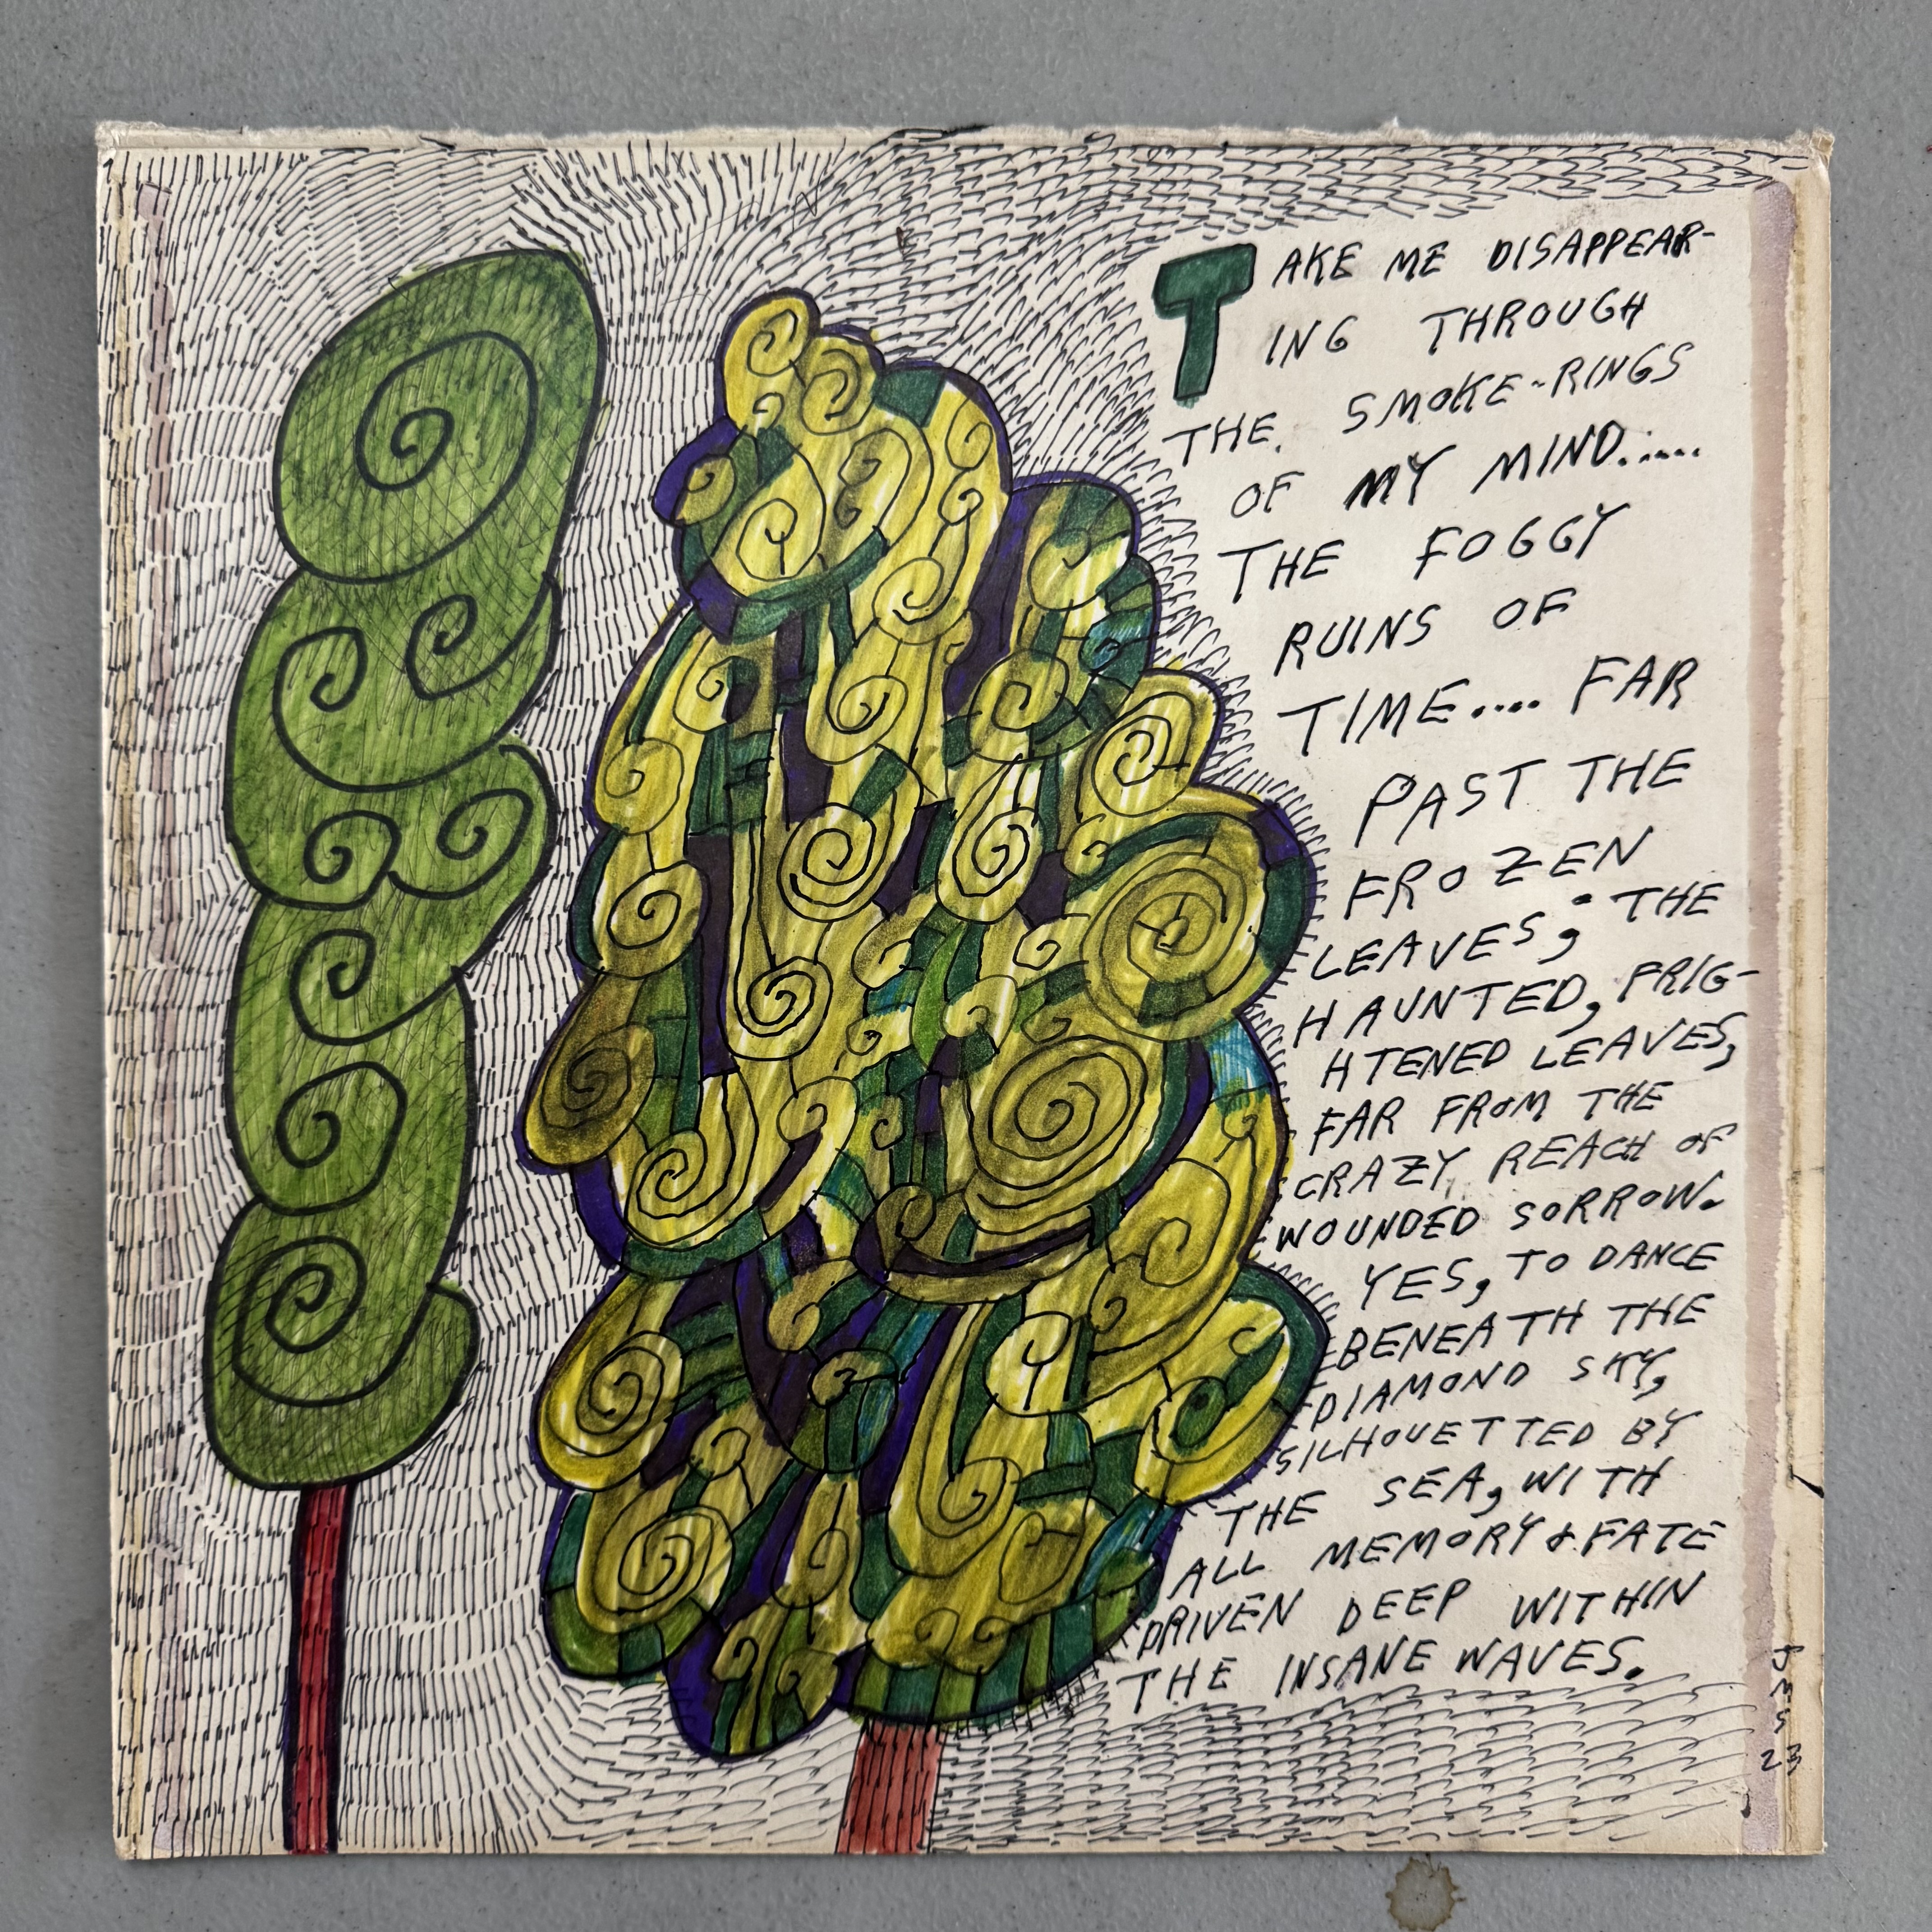 TAKE ME DISAPPEAR-
ING THROUGH
THE. SMOKE-RINGS
OF MY MIND.....
THE FOGGY
RUINS OF
TIME.... FAR
PAST THE
FROZEN
LEAVES; THE
HAUNTED, FRIG-
HTENED LEAVES,
FAR FROM THE
CRAZY REACH OF
WOUNDED SORROW.
YES, TO DANCE
BENEATH THE
DIAMOND SKY,
SILHOUETTED BY
THE SEA, WITH
ALL MEMORY & FATE
DRIVEN DEEP WITHIN
THE INSANE WAVES.
23